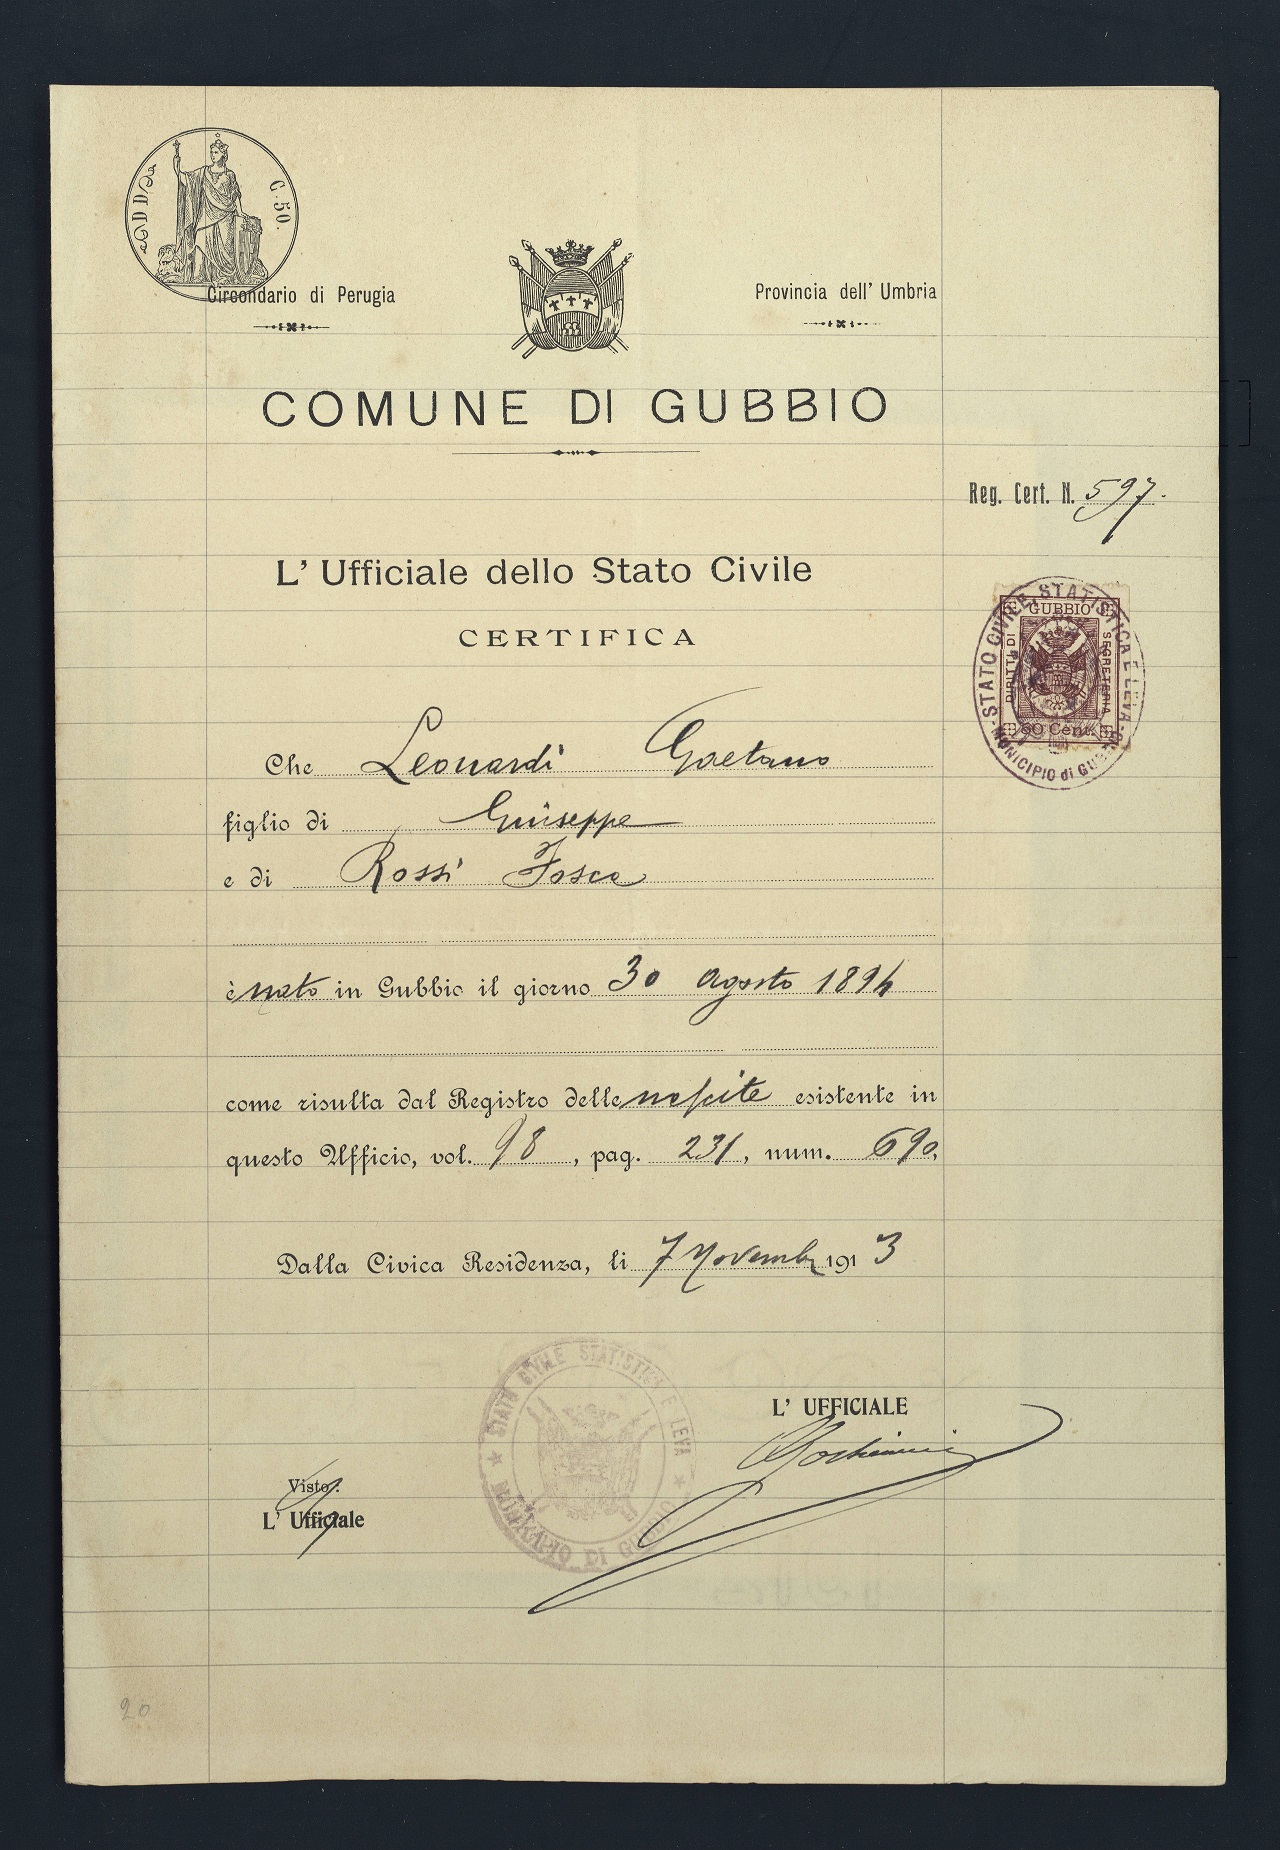 C. 50.
Circondario di Perugia
Provincia dell' Umbria
COMUNE DI GUBBIO
Reg. Cert. N. 597.
L' Ufficiale dello Stato Civile
CERTIFICA
STATO CIVILE, STATISTICA E LEVA
MUNICIPIO di GUBBIO
GUBBIO
DIRITTO DI
SEGRETERIA
60 Cent.
Che Leonardi Gaetano
figlio di Giuseppe
e di Rossi Fosca
è nato in Gubbio il giorno 30 agosto 1894
come risulta dal Registro delle nascite esistente in
questo Ufficio, vol. 98, pag. 231, num. 690,
Dalla Civica Residenza, li 7 Novembre 1913
STATO CIVILE STATISTICA E LEVA
MUNICIPIO DI GUBBIO
L' UFFICIALE
Visto:
L' Ufficiale
20